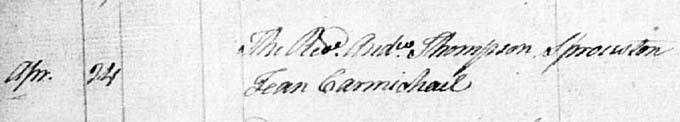 The Revd. Andw. Thompson, Sprouston
Apr. 24 Jean Carmichael